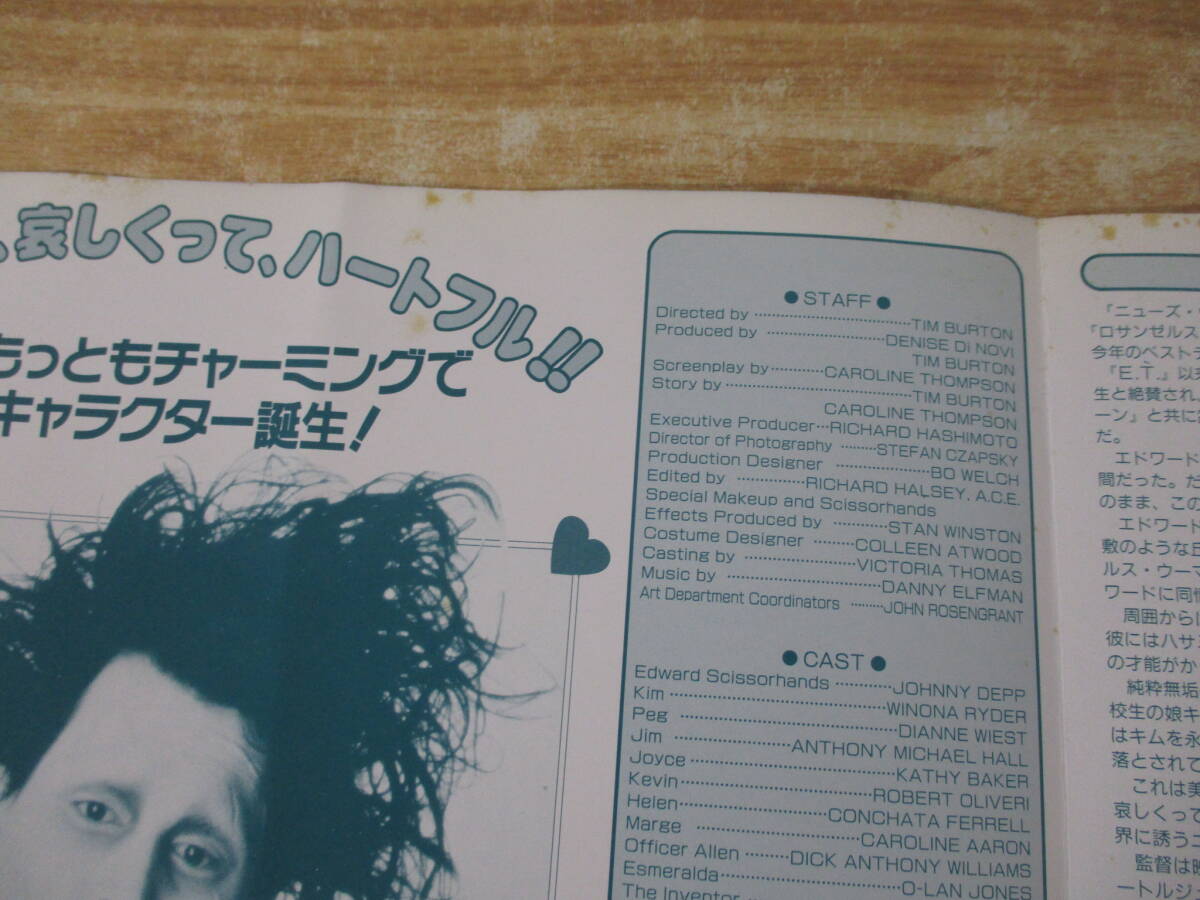 、哀しくって、ハートフル!!
もっともチャーミングで
キャラクター誕生!
●STAFF●
Directed by ………TIM BURTON
Produced by ………DENISE Di NOVI
TIM BURTON
Screenplay by………CAROLINE THOMPSON
Story by………TIM BURTON
CAROLINE THOMPSON
Executive Producer…RICHARD HASHIMOTO
Director of Photography ………STEFAN CZAPSKY
Production Designer ………BO WELCH
Edited by ………RICHARD HALSEY. A.C.E.
Special Makeup and Scissorhands
Effects Produced by ………STAN WINSTON
Costume Designer ………COLLEEN ATWOOD
Casting by ………VICTORIA THOMAS
Music by ………DANNY ELFMAN
Art Department Coordinators ………JOHN ROSENGRANT
●CAST●
Edward Scissorhands ………JOHNNY DEPP
Kim ………WINONA RYDER
Peg ………DIANNE WIEST
Jim ………ANTHONY MICHAEL HALL
Joyce ………KATHY BAKER
Kevin………ROBERT OLIVERI
Helen………CONCHATA FERRELL
Marge ………CAROLINE AARON
Officer Allen ………DICK ANTHONY WILLIAMS
Esmeralda………O-LAN JONES
The Inventor
『ニューズ・
『ロサンゼルス
今年のベスト
『E.T.』以
生と絶賛され
ーン』と共に
だ。
エドワード
間だった。だ
のまま、この
エドワード
敷のような丘
ルス・ウーマ
ワードに同情
周囲から
彼にはハサ
の才能がか
純粋無垢
校生の娘キ
はキムを永
落とされて
これは美
哀しくって
界に誘うこ
監督は映
ートルジ